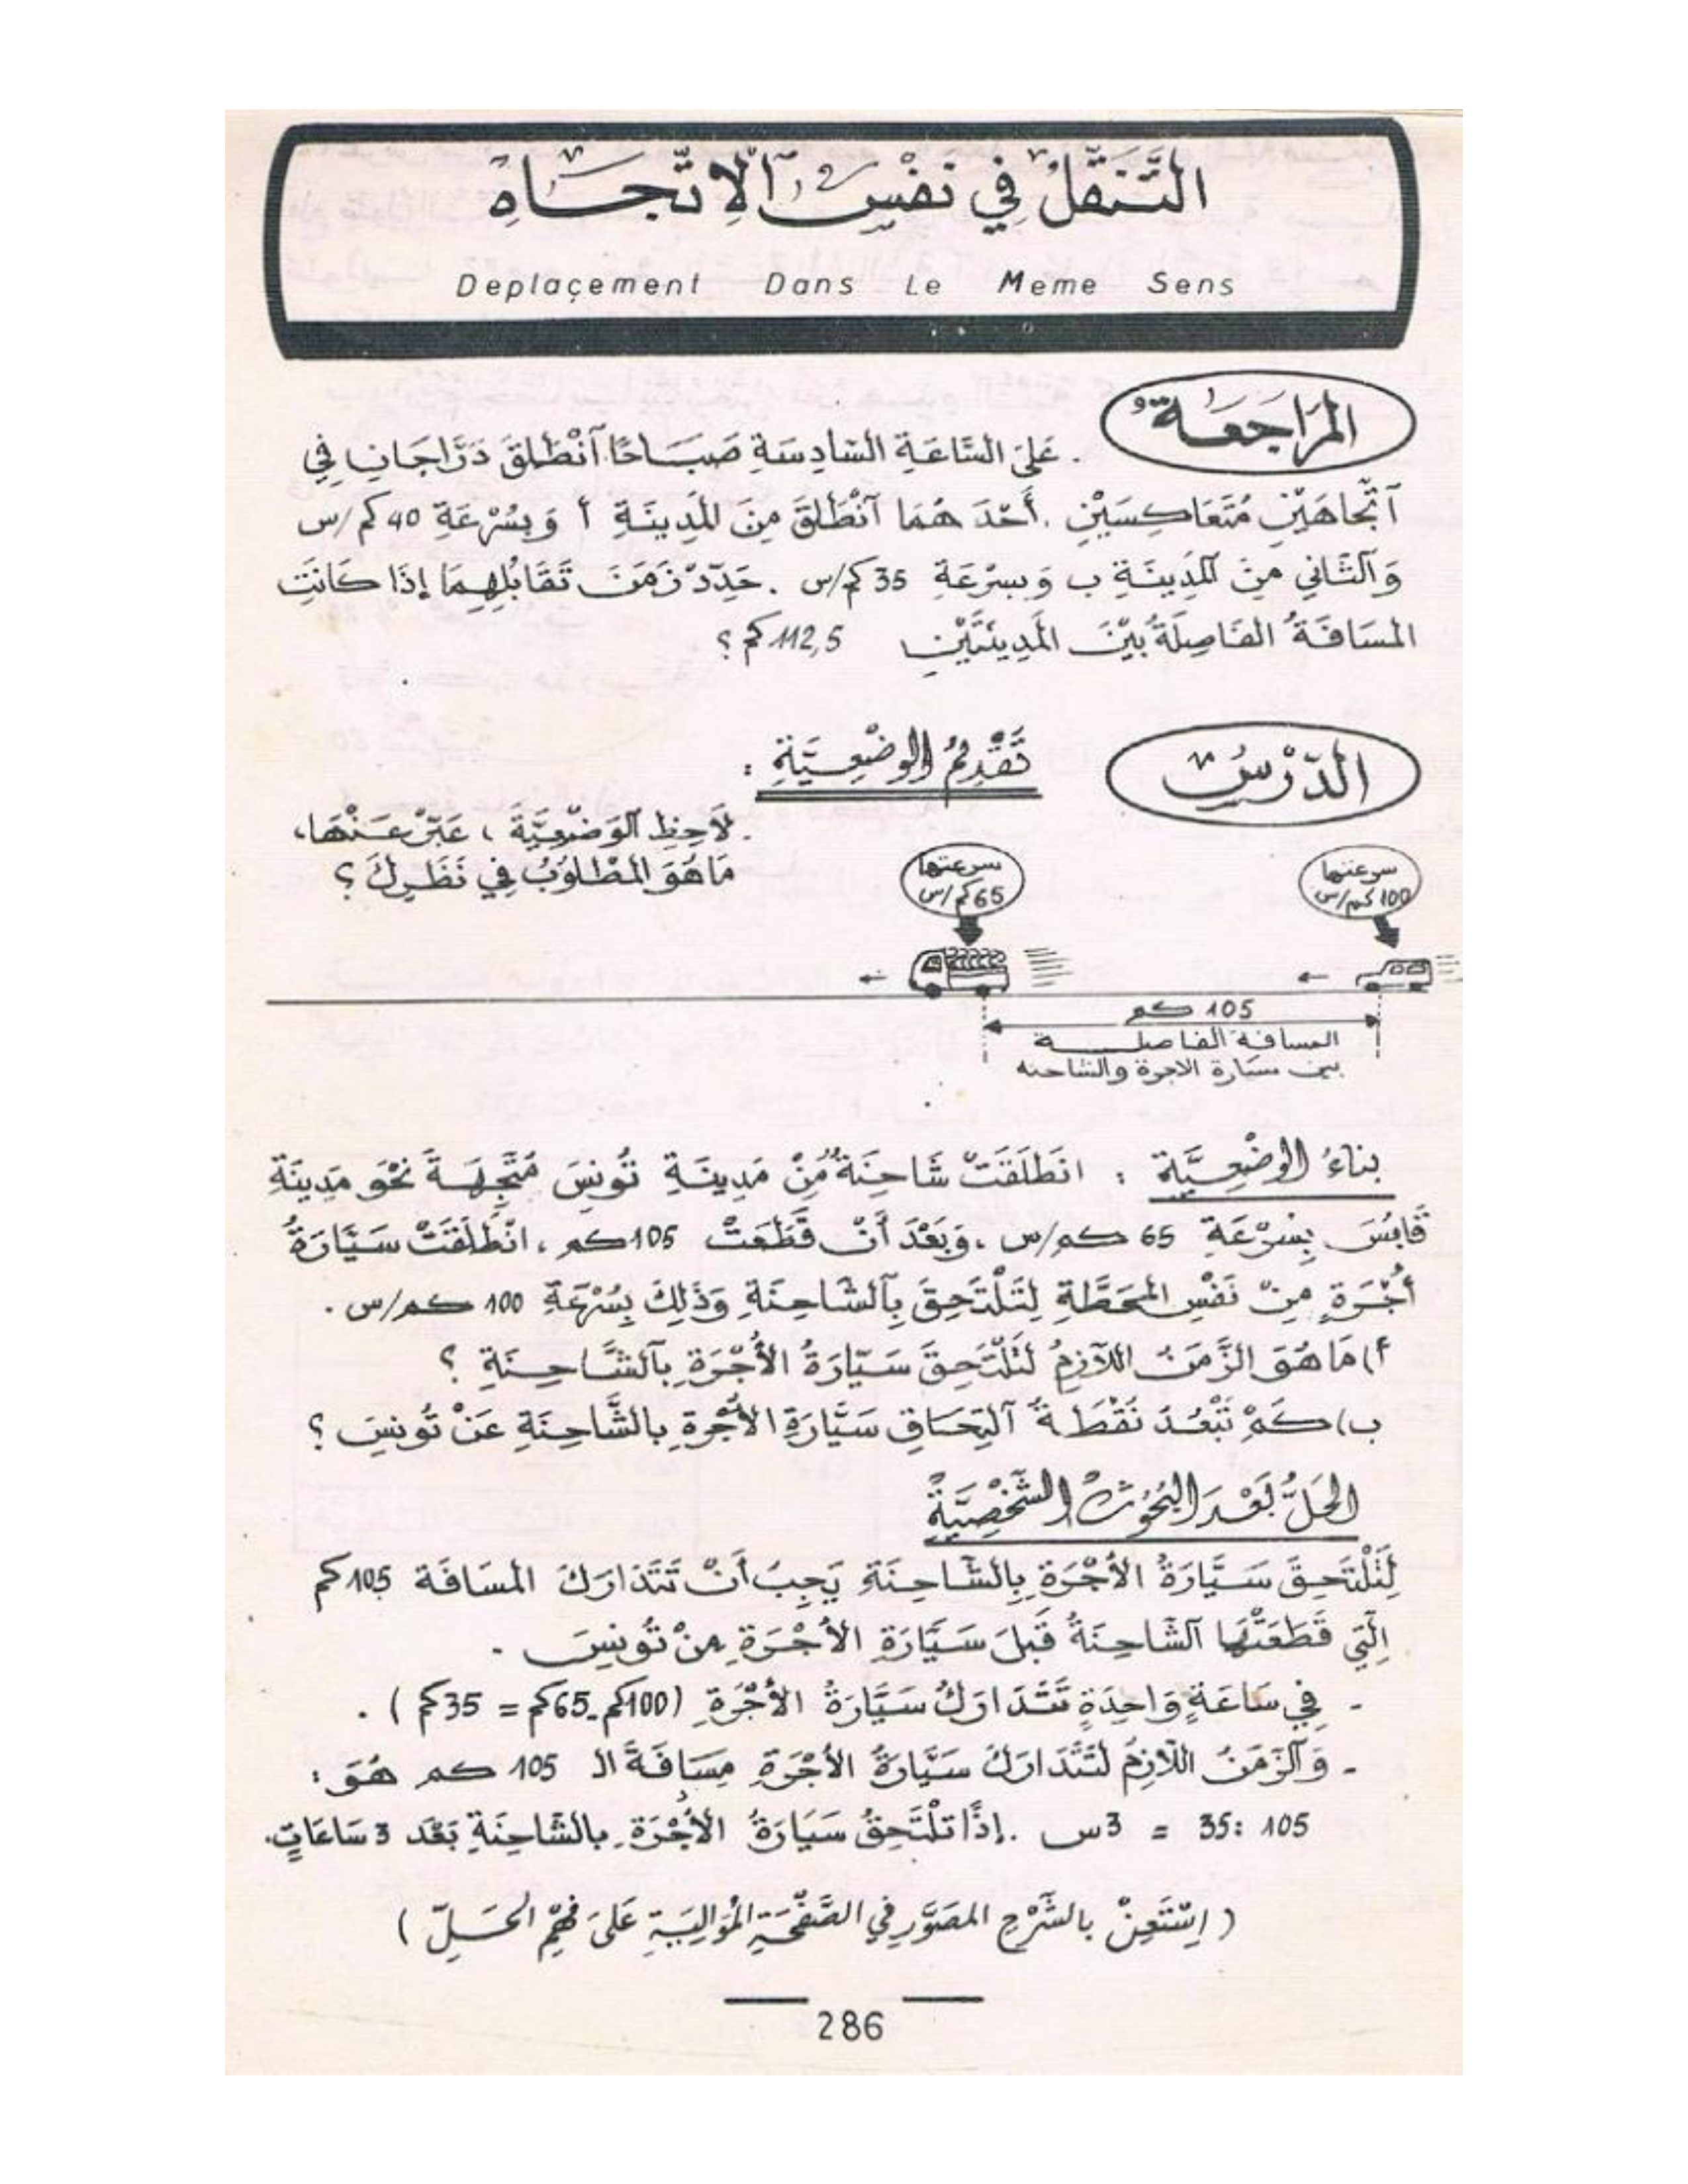 التَّنَقُّلُ فِي نَفْسِ ٱلْاِتِّجَاهِ
Deplaçement Dans Le Meme Sens
المُرَاجَعَةُ
. عَلَى السَّاعَةِ السَّادِسَةِ صَبَاحًا ٱنْطَلَقَ دَرَّاجَانِ فِي
ٱتِّجَاهَيْنِ مُتَعَاكِسَيْنِ . أَحَدُهُمَا ٱنْطَلَقَ مِنَ المَدِينَةِ أ وَبِسُرْعَةِ 40 كم/س
وَٱلثَّانِي مِنَ ٱلمَدِينَةِ ب وَبِسُرْعَةِ 35 كم/س . حَدِّدْ زَمَنَ تَقَابُلِهِمَا إِذَا كَانَتِ
المَسَافَةُ الفَاصِلَةُ بَيْنَ المَدِينَتَيْنِ 112,5 كم ؟
الدَّرْسُ
تَقْدِيمُ الوَضْعِيَّةِ :
. لَاحِظِ ٱلوَضْعِيَّةَ ، عَبِّرْ عَنْهَا،
مَا هُوَ المَطْلُوبُ فِي نَظَرِكَ ؟
سرعتها
100 كم/س
سرعتها
65 كم/س
105 كم
المسافة الفاصلة
بين سيارة الاجرة والشاحنه
بِنَاءُ الوَضْعِيَّةِ : انْطَلَقَتْ شَاحِنَةٌ مِنْ مَدِينَةِ تُونِسَ مُتَّجِهَةً نَحْوَ مَدِينَةِ
قَابِسَ بِسُرْعَةِ 65 كم/س ، وَبَعْدَ أَنْ قَطَعَتْ 105 كم ، انْطَلَقَتْ سَيَّارَةُ
أُجْرَةٍ مِنْ نَفْسِ المَحَطَّةِ لِتَلْتَحِقَ بِٱلشَّاحِنَةِ وَذَلِكَ بِسُرْعَةِ 100 كم/س .
أ) مَا هُوَ الزَّمَنُ اللَّازِمُ لِتَلْتَحِقَ سَيَّارَةُ الأُجْرَةِ بِٱلشَّاحِنَةِ ؟
ب) كَمْ تَبْعُدُ نُقْطَةُ ٱلْتِحَاقِ سَيَّارَةِ الأُجْرَةِ بِالشَّاحِنَةِ عَنْ تُونِسَ ؟
الحَلُّ بَعْدَ البُحُوثِ الشَّخْصِيَّةِ
لِتَلْتَحِقَ سَيَّارَةُ الأُجْرَةِ بِالشَّاحِنَةِ يَجِبُ أَنْ تَتَدَارَكَ المَسَافَةَ 105 كم
الَّتِي قَطَعَتْهَا ٱلشَّاحِنَةُ قَبْلَ سَيَّارَةِ الأُجْرَةِ مِنْ تُونِسَ .
- فِي سَاعَةٍ وَاحِدَةٍ تَتَدَارَكُ سَيَّارَةُ الأُجْرَةِ (100كم - 65كم = 35كم ) .
- وَٱلزَّمَنُ اللَّازِمُ لِتَتَدَارَكَ سَيَّارَةُ الأُجْرَةِ مَسَافَةَ الـ 105 كم هُوَ :
105 : 35 = 3س . إِذًا تَلْتَحِقُ سَيَّارَةُ الأُجْرَةِ بِالشَّاحِنَةِ بَعْدَ 3 سَاعَاتٍ.
( اِسْتَعِنْ بِالشَّرْحِ المُصَوَّرِ فِي الصَّفْحَةِ المُوَالِيَةِ عَلَى فَهْمِ الحَلِّ )
286